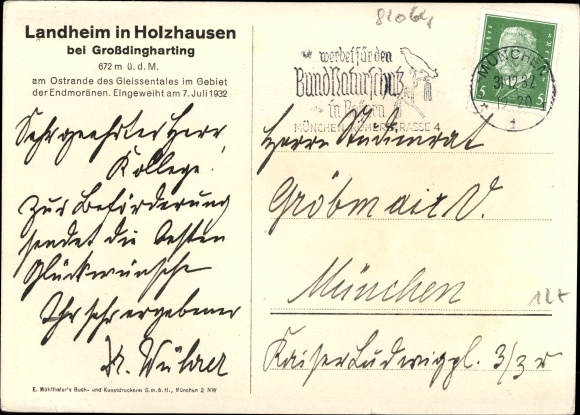 Landheim in Holzhausen
bei Großdingharting
672 m ü. d. M.
am Ostrande des Gleissentales im Gebiet
der Endmoränen. Eingeweiht am 7. Juli 1932
Sehr geehrter Herr
Kollege!
Zur Beförderung
sendet die besten
Glückwünsche
Ihr sehr ergebener
E. Mühlthaler's Buch- und Kunstdruckerei G.m.b.H., München 2 NW
81064
werbet für den
Bund Naturschutz
in Bayern
MÜNCHEN, RÖMERSTRASSE 4
MÜNCHEN
31.12.32
5 5
Herrn Studienrat
Gröbmair V.
München
Kaiser Ludwigpl. 3/3 r